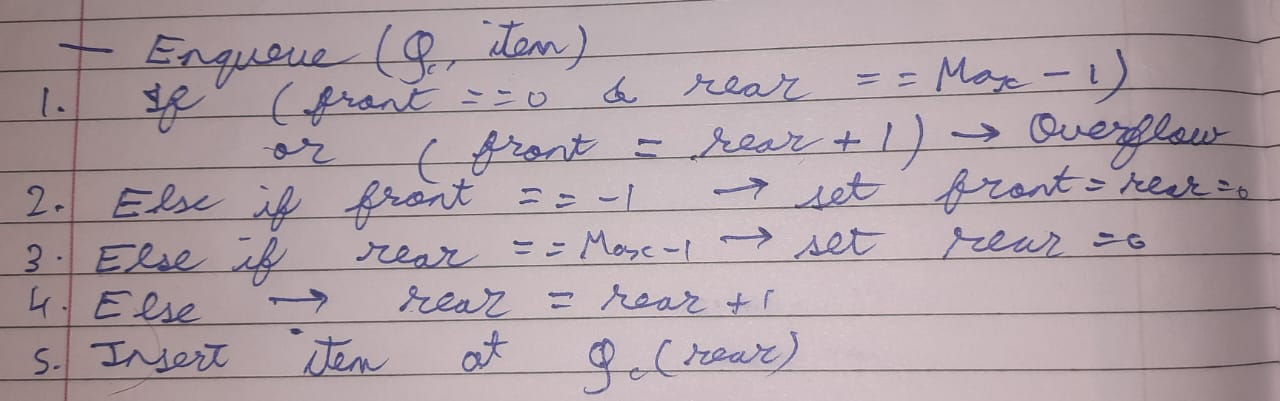 — Enqueue (Qc, item)
1. If (front == 0 & rear == Max - 1)
or (front = rear + 1) → Overflow
2. Else if front == -1 → set front = rear = 0
3. Else if rear == Max-1 → set rear = 0
4. Else → rear = rear + 1
5. Insert item at Qc (rear)